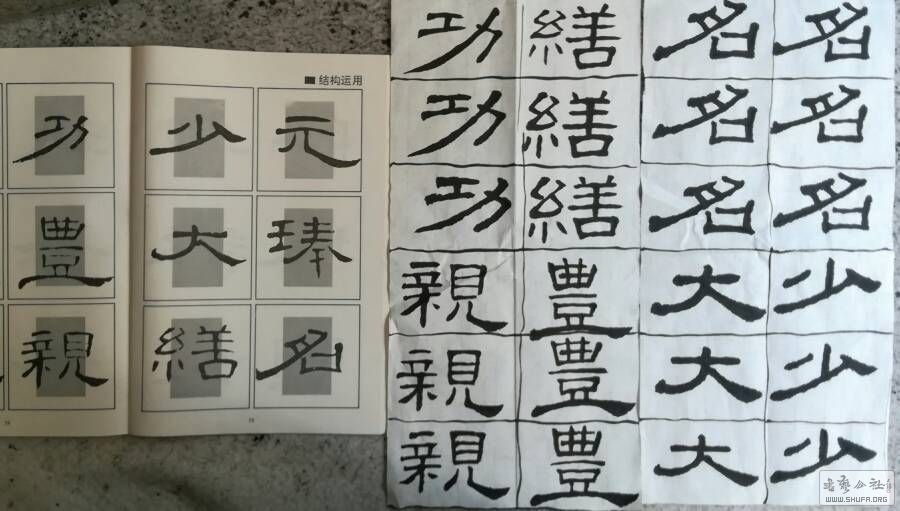 ■结构运用
功 少 元
豊 大 㻋
親 繕 名
功 繕 名 名
功 繕 名 名
功 繕 名 名
親 豊 大 少
親 豊 大 少
親 豊 大 少
WWW.SHUFA.ORG